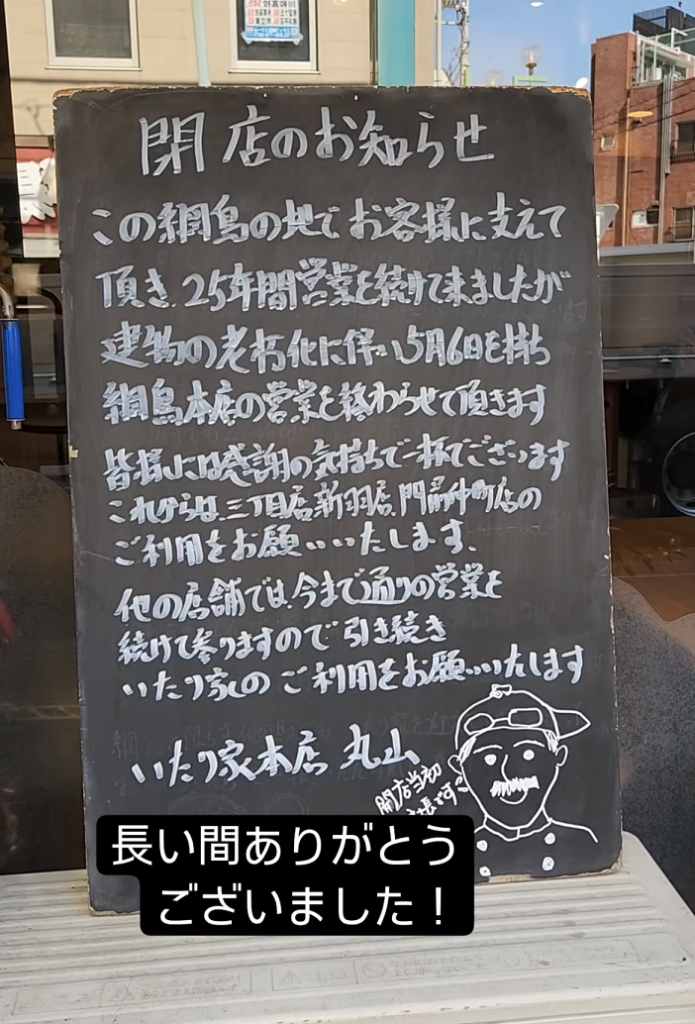 閉店のお知らせ
この綱島の地でお客様に支えて
頂き、25年間営業を続けて来ましたが
建物の老朽化に伴い5月6日を持ち
綱島本店の営業を終わらせて頂きます
皆様には感謝の気持ちで一杯でございます
これからは、三丁目店、新羽店、門前仲町店の
ご利用をお願いいたします、
他の店舗では、今まで通りの営業を
続けて参りますので引き続き
いたり家のご利用をお願いいたします
いたり家本店 丸山
開店当初
長い間ありがとう
ございました！